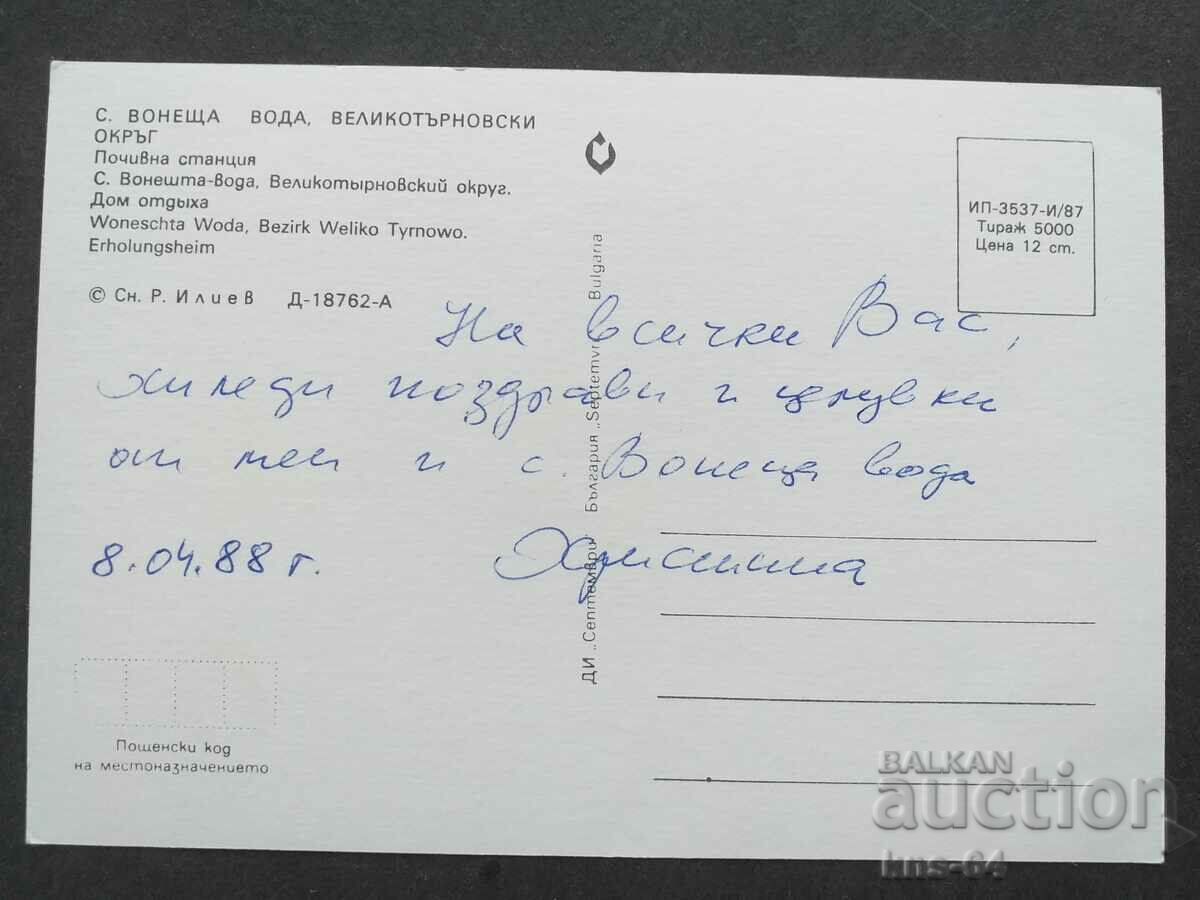 С. ВОНЕЩА ВОДА, ВЕЛИКОТЪРНОВСКИ
ОКРЪГ
Почивна станция
С. Вонешта-вода, Великотырновский округ.
Дом отдыха
Woneschta Woda, Bezirk Weliko Tyrnowo.
Erholungsheim
© Сн. Р. Илиев Д-18762-А
ИП-3537-И/87
Тираж 5000
Цена 12 ст.
На всички Вас,
хиледи поздрави и целувки
от мен и с. Вонеща вода
8.04.88 г. Христина
ДИ „Септември" България „Septemvri" Bulgaria
Пощенски код
на местоназначението
BALKAN
auction
kns-64